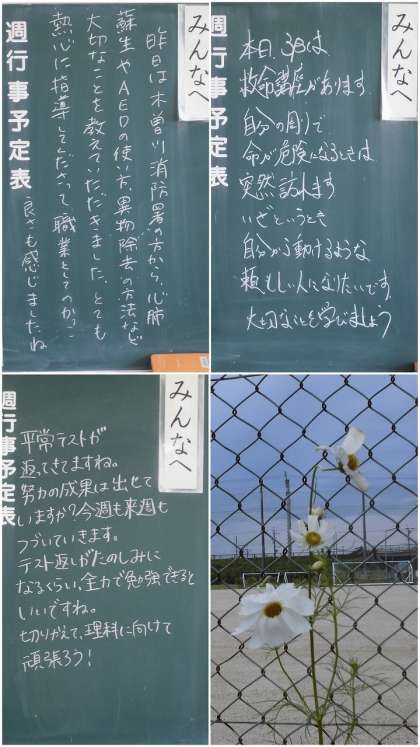 みんなへ
昨日は木曽川消防署の方から、心肺
蘇生やAEDの使い方、異物除去の方法など
大切なことを教えていただきました。とても
熱心に指導してくださって、職業としてのかっこ
良さも感じましたね
週行事予定表
みんなへ
本日、3Bは
救命講座があります
自分の周りで
命が危険になるときは
突然訪れます
いざというとき
自分から動けるような
頼もしい人になりたいです
大切なことを学びましょう
週行事予定表
みんなへ
平常テストが
返ってきてますね。
努力の成果は出せて
いますか?今週も来週も
つづいていきます。
テスト返しがたのしみに
なるくらい、全力で勉強できると
いいですね。
切りかえて、理科に向けて
頑張ろう!
週行事予定表